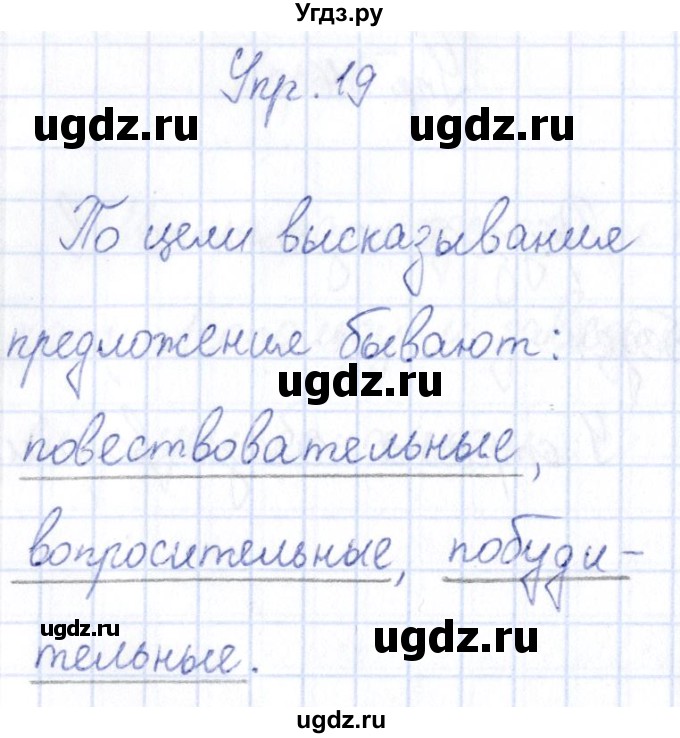 Угдз.ру
Упр. 19
ugdz.ru ugdz.ru
По цели высказывания
предложения бывают:
ugdz.ru
повествовательные,
вопросительные, побуди-
ugdz.ru ugdz.ru
тельные.
ugdz.ru